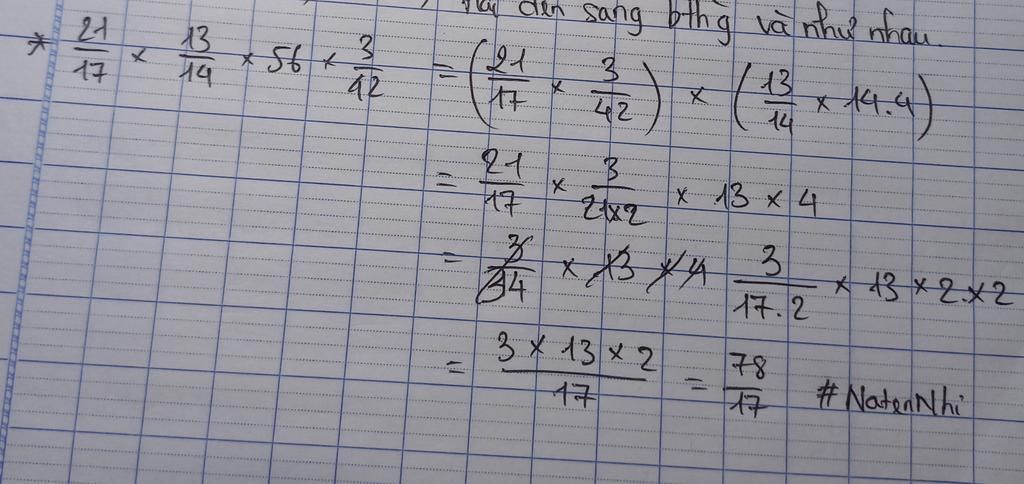 đèn sang bthg và như nhau.
* 21/17 × 13/14 × 56 × 3/42 = (21/17 × 3/42) × (13/14 × 14.4)
= 21/17 × 3/21×2 × 13 × 4
= 3/34 × 13 × 4 3/17.2 × 13 × 2.×2
= 3 × 13 × 2/17 = 78/17 #NatenNhi